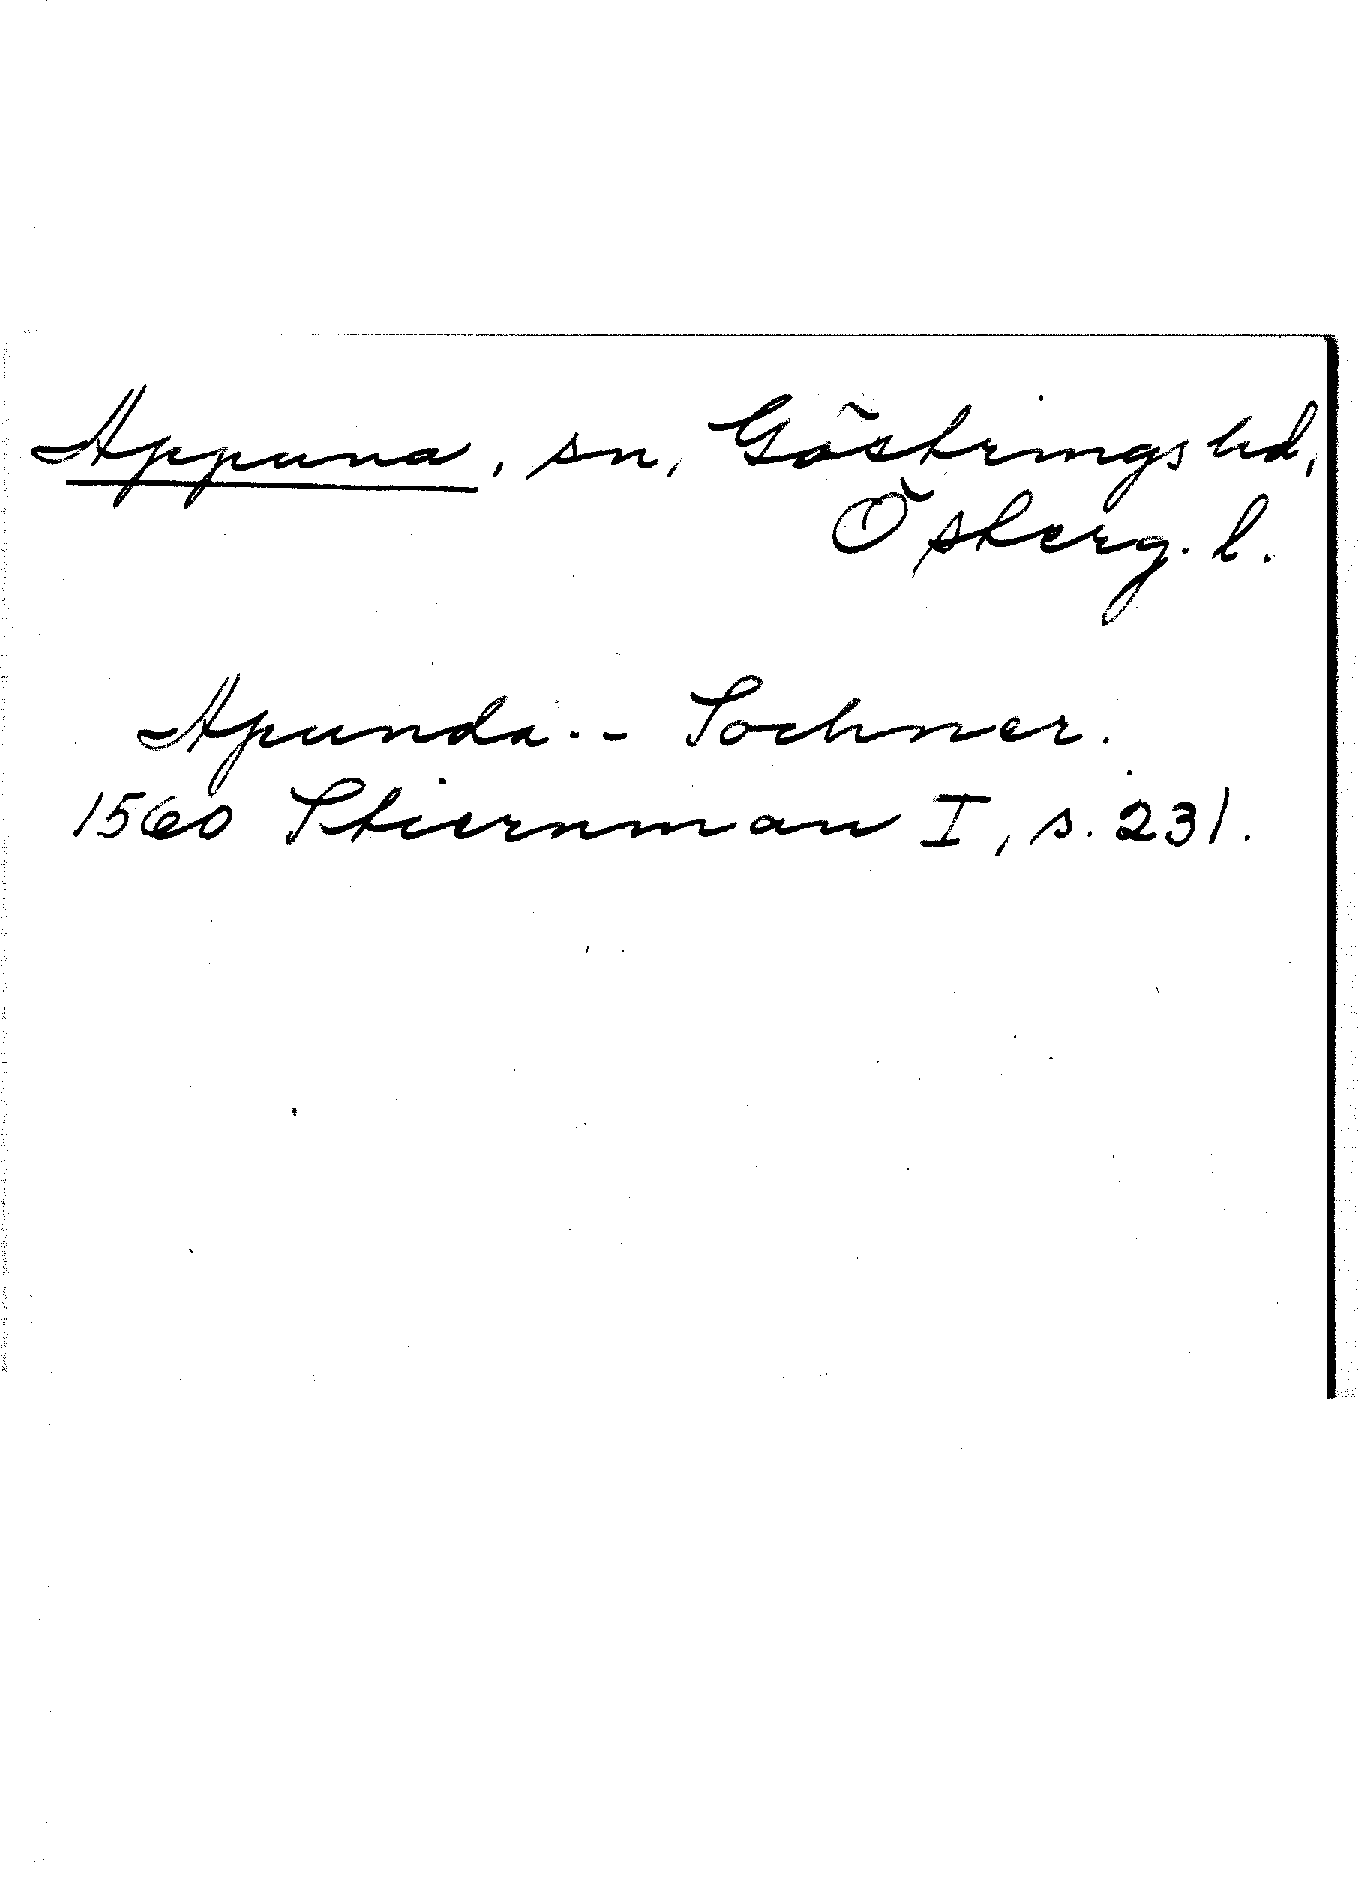 Appuna, sn, Göstrings hd,
Österg. l.
Apunda.- Sochner.
1560 Stiernman I, s. 231.